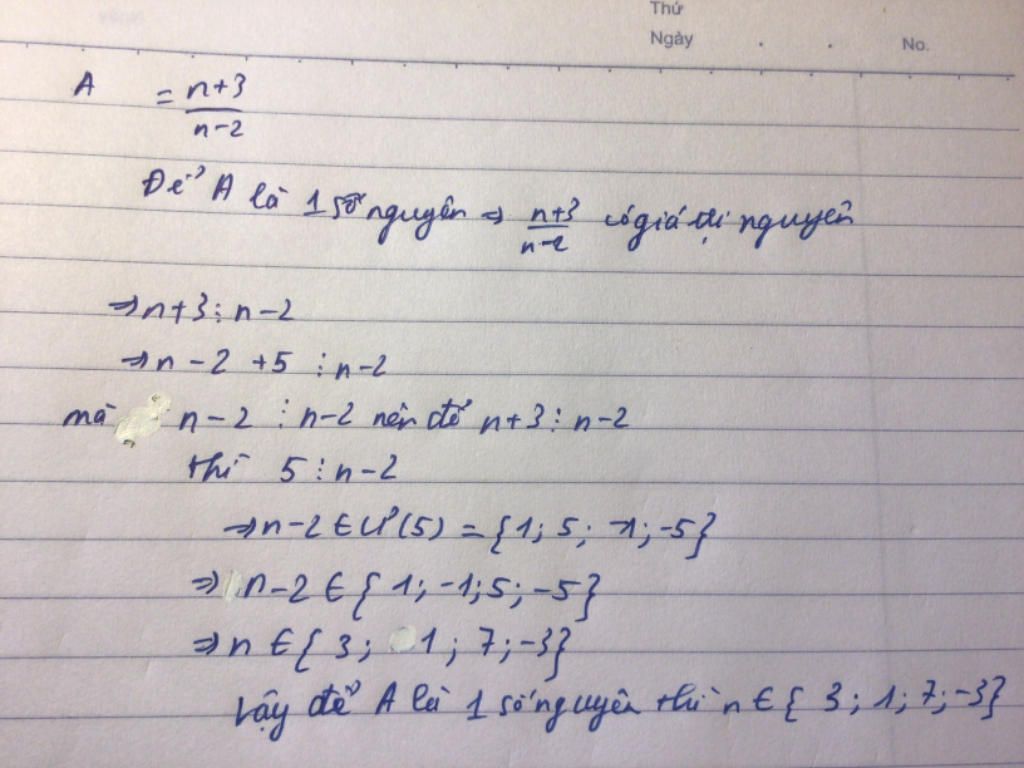 Thứ
Ngày . . No.
A = \frac{n+3}{n-2}
Để A là 1 số nguyên ⇒ \frac{n+3}{n-2} có giá trị nguyên
⇒ n+3 ⋮ n-2
⇒ n - 2 + 5 ⋮ n-2
mà n-2 ⋮ n-2 nên để n+3 ⋮ n-2
thì 5 ⋮ n-2
⇒ n-2 ∈ Ư(5) = {1; 5; -1; -5}
⇒ n-2 ∈ {1; -1; 5; -5}
⇒ n ∈ {3; 1; 7; -3}
Vậy để A là 1 số nguyên thì n ∈ {3; 1; 7; -3}